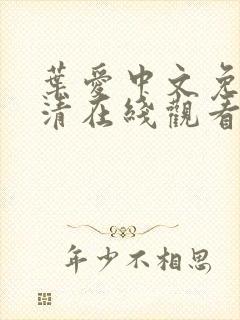 葉愛中文免
清在綫觀看
年少不相思